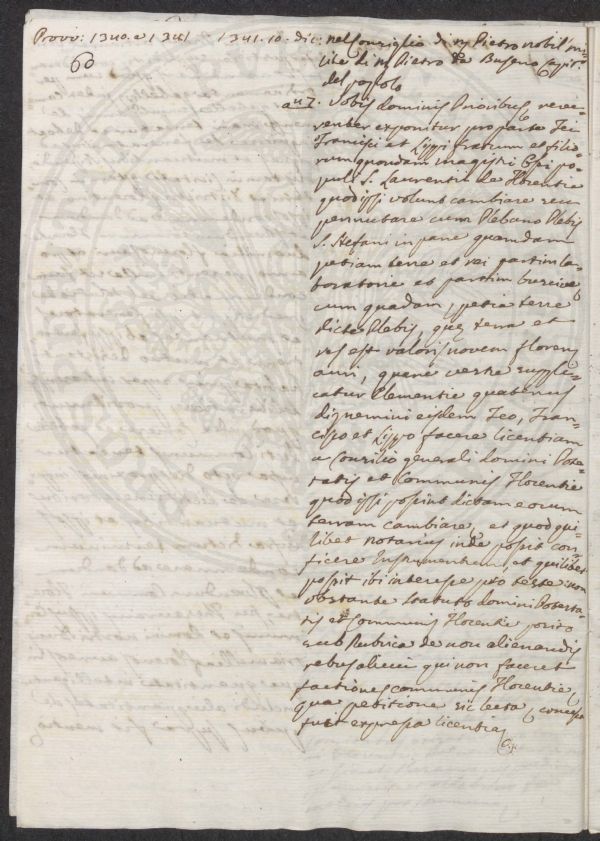 Provv: 1340. e 1341 1341. 10. dic: nel Consiglio di m Pietro nobil mi=
60 lite di m Pietro de Buseno capit:
del popolo
a 17. Vobis dominis Prioribus reve=
renter exponitur pro parte Feì
Francisci et Lippi fratrum et filio
rum quondam magistri po=
puli S. Laurentii de Florentia
quod ipsi volunt cambiare seu
permutare cum Plebano Plebis
S. Stefani in pane quamdam
petiam terre et rei partim la=
boratorie et partim
cum quadam petia terre
dicte Plebis, que terra et
res est valoris novem floren
auri, quare vestre suppli=
catur Clementie quatenus
dignemini eisdem Feo, Fran=
cisco et Lippo facere licentiam
a Consilio generali domini Pote=
statis et Communis Florentie
quod ipsi possint dictam eorum
terram cambiare, et quod qui=
libet notarius inde possit con=
ficere Instrumentum, et quilibet
possit ibi interesse pro teste non
obstante statuto domini Potesta=
tis et Communis Florentie posito
sub Rubrica de non alienandis
rebus alicui qui non faceret
factiones communis Florentie,
qua petitione sic lecta, concessa
fuit expressa licentia